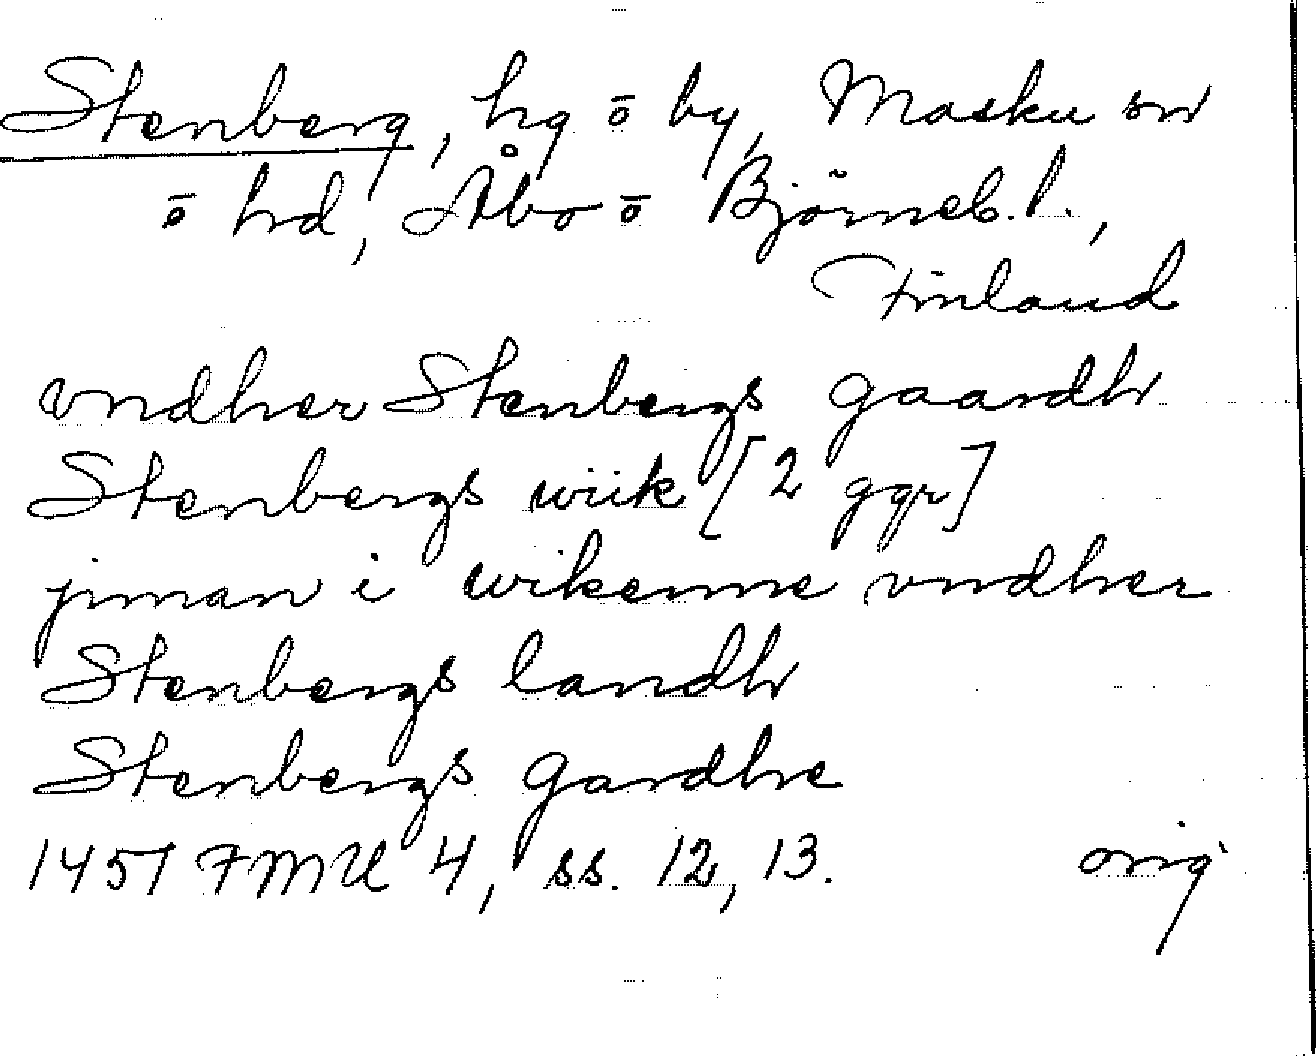 Stenberg, hg ō by, Masku sn
ō hd, Åbo ō Björneb. l.,
Finland
vndher Stenbergs gaardh
Stenbergs wiik [2 ggr]
jnnan i wikenne vndher
Stenbergs landh
Stenbergs gardhe
1451 FMU 4, ss. 12, 13. orig